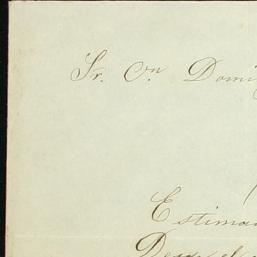 Sr. Dn Domi
Estima
Desde el